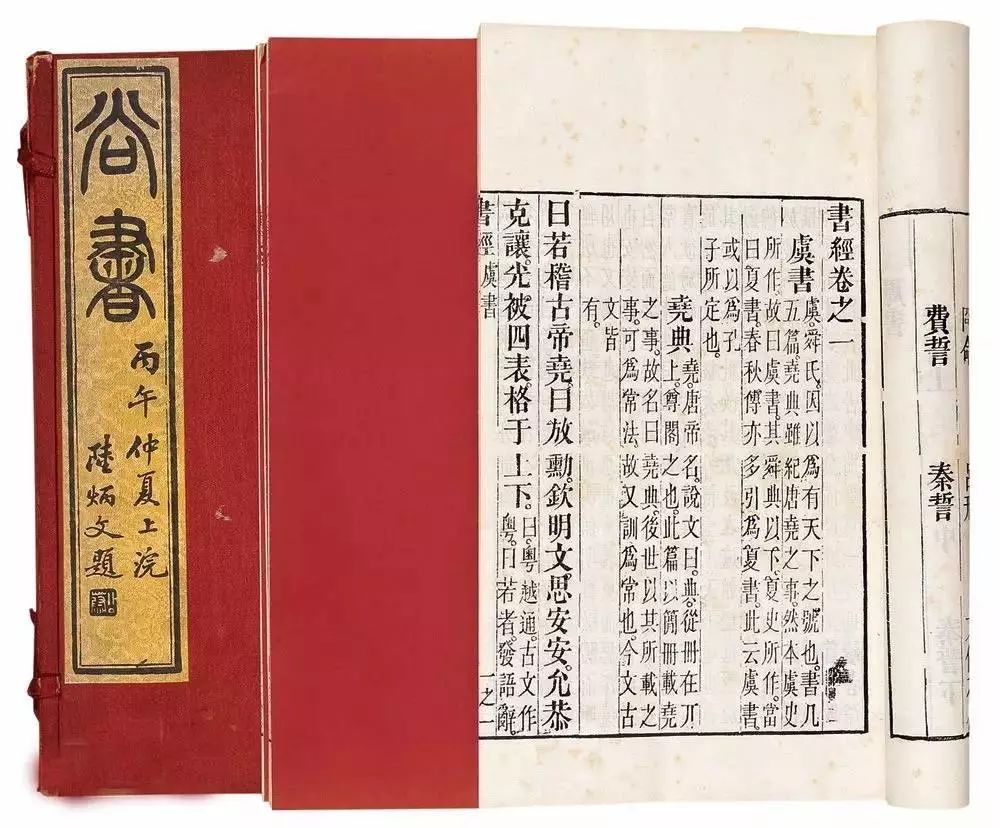 尚書
丙午仲夏上浣
陸炳文題
費誓
秦誓
書經卷之一
虞書
虞。舜氏。因以爲有天下之號也。書凡
五篇。堯典雖紀唐堯之事。然本虞史
所作。故曰虞書。其舜典以下。夏史所作。當
曰夏書。春秋傳亦多引爲夏書。此云虞書
或以爲孔
子所定也。
堯典
堯。唐帝名。說文曰。典。從冊在丌
上。尊閣之也。此篇以簡冊載堯
之事。故名曰堯典。後世以其所載之
事。可爲常法。故又訓爲常也。今文古
文皆
有。
曰若稽古帝堯。曰放勳。欽明文思安安。允恭
克讓。光被四表。格于上下。
曰。粤越通。古文作
粵。曰若者。發語辭。
書經 虞書 一之一